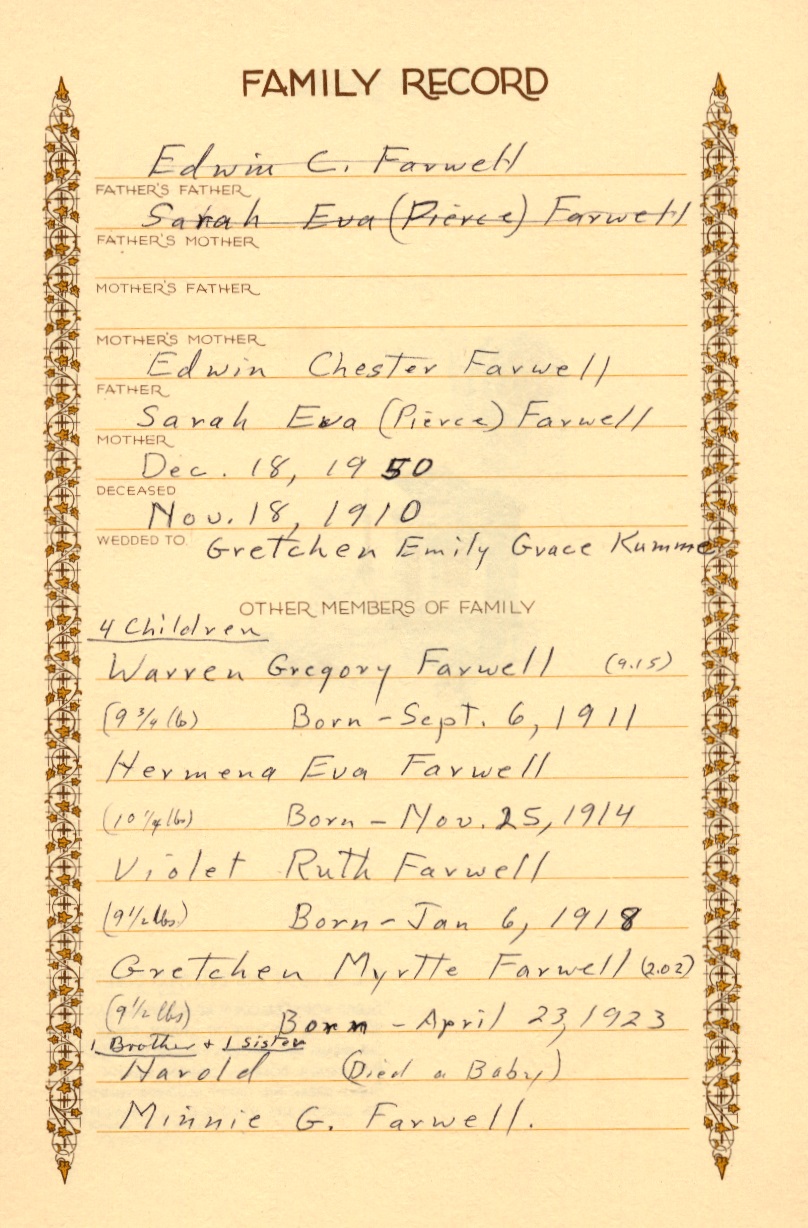 FAMILY RECORD
Edwin C. Farwell
FATHER'S FATHER
Sarah Eva (Pierce) Farwell
FATHER'S MOTHER
MOTHER'S FATHER
MOTHER'S MOTHER
Edwin Chester Farwell
FATHER
Sarah Eva (Pierce) Farwell
MOTHER
Dec. 18, 1950
DECEASED
Nov. 18, 1910
WEDDED TO Gretchen Emily Grace Kumme
OTHER MEMBERS OF FAMILY
4 Children
Warren Gregory Farwell (9.15)
(9 3/4 lb) Born - Sept. 6, 1911
Hermena Eva Farwell
(10 1/4 lbs) Born - Nov. 25, 1914
Violet Ruth Farwell
(9 1/2 lbs) Born - Jan 6, 1918
Gretchen Myrtte Farwell (2.02)
(9 1/2 lbs) Born - April 23, 1923
1 Brother + 1 Sister
Harold (Died a Baby)
Minnie G. Farwell.